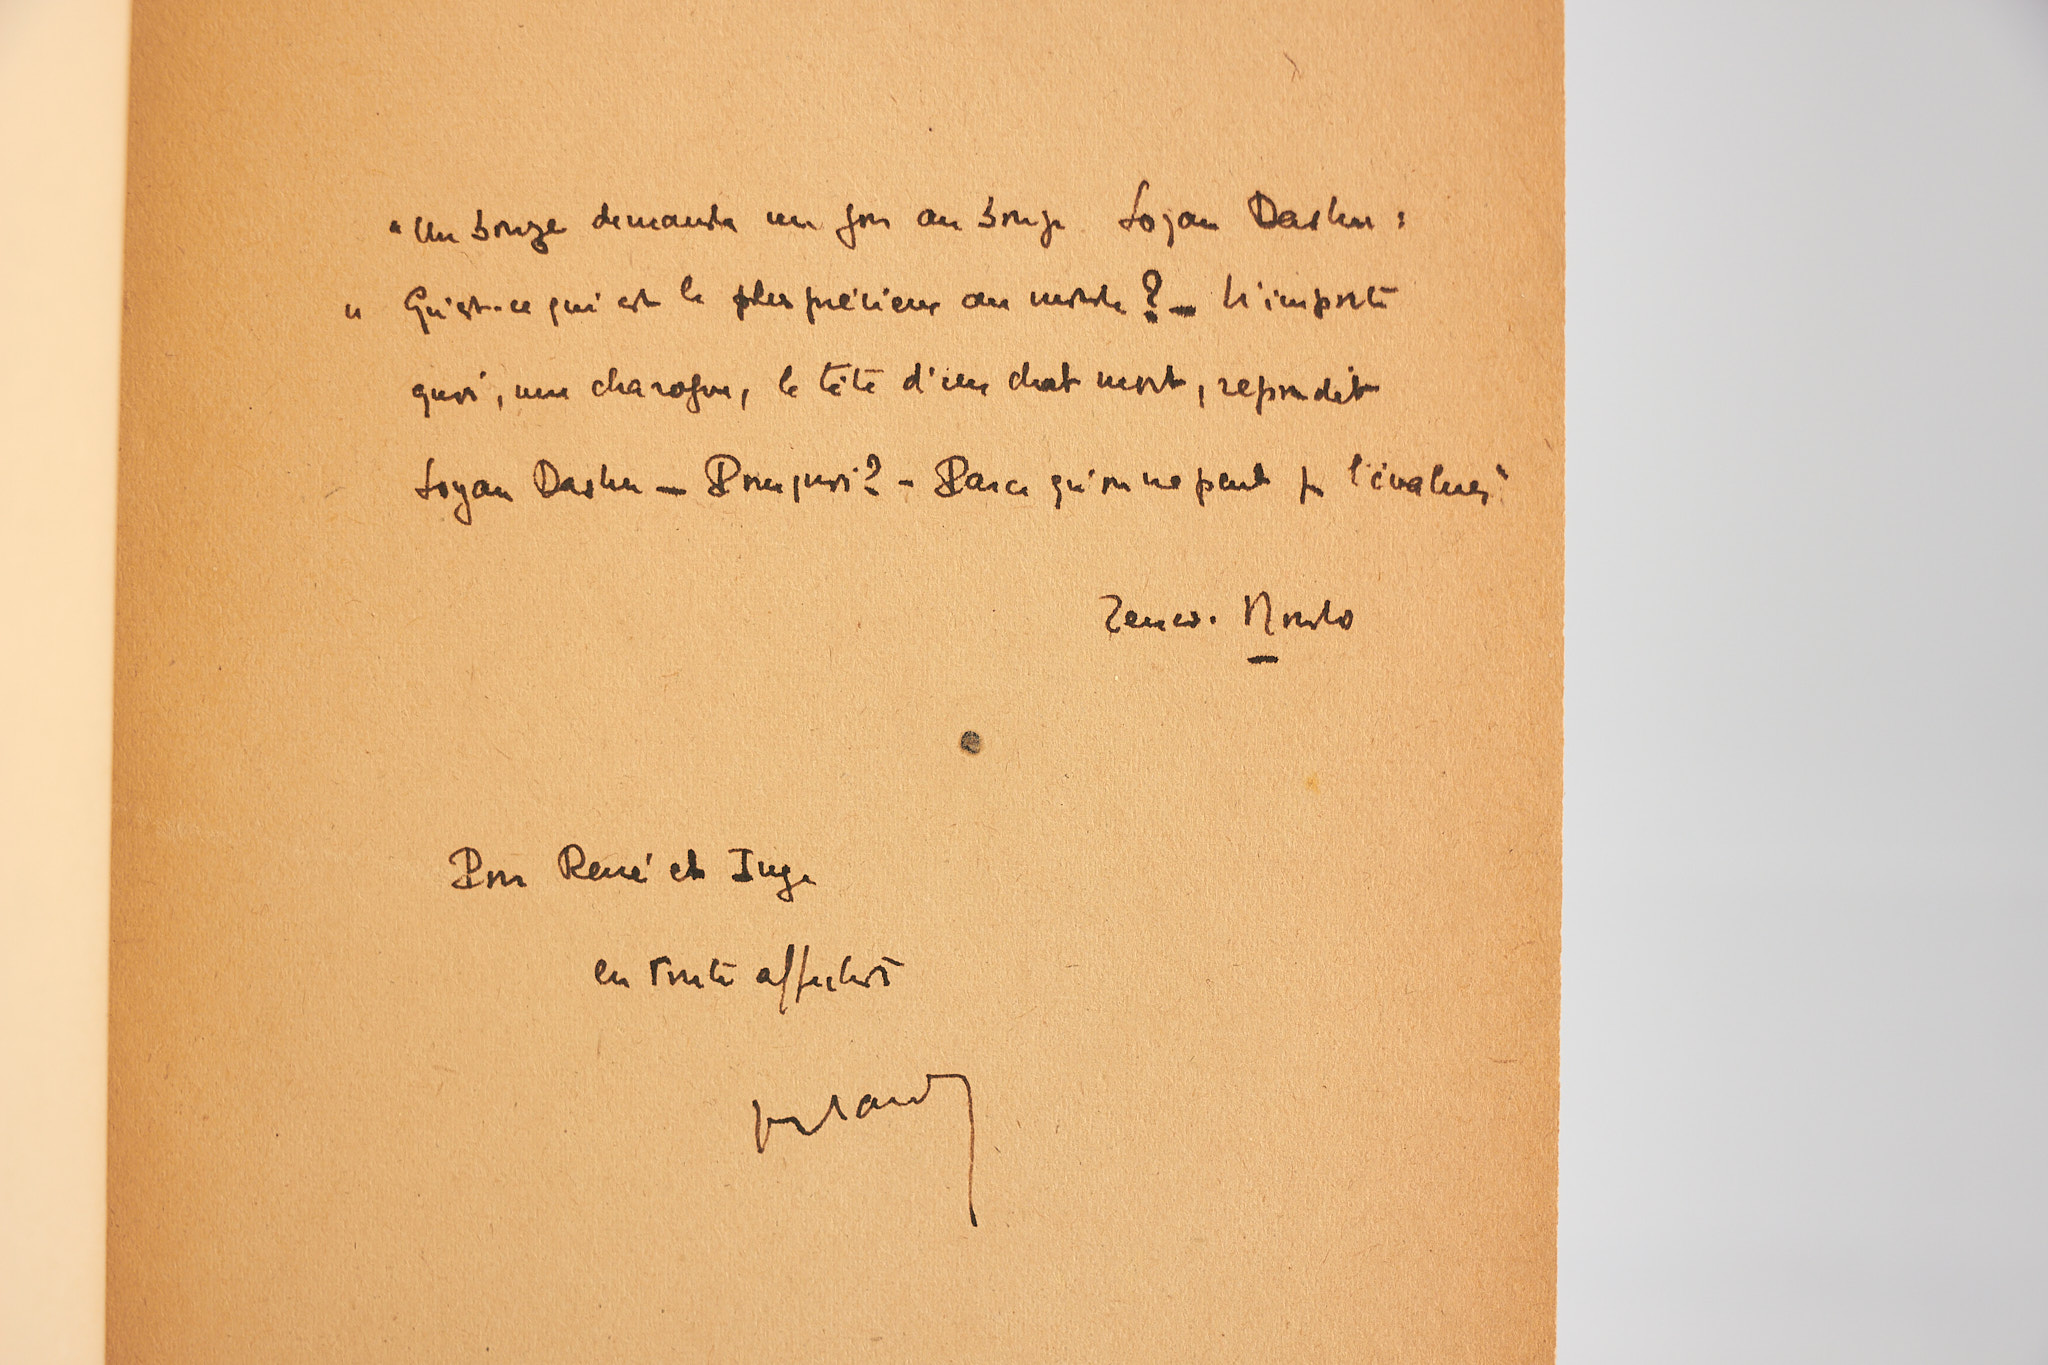 "Un bonze demanda un jour au bonze Sozan Dashu :
" Qu'est-ce qui est le plus précieux au monde ? – N'importe
quoi, une charogne, la tête d'un chat mort, répondit
Sozan Dashu – Pourquoi ? – Parce qu'on ne peut pas l'évaluer".
Mondo
Pour René et Inge
en toute affection